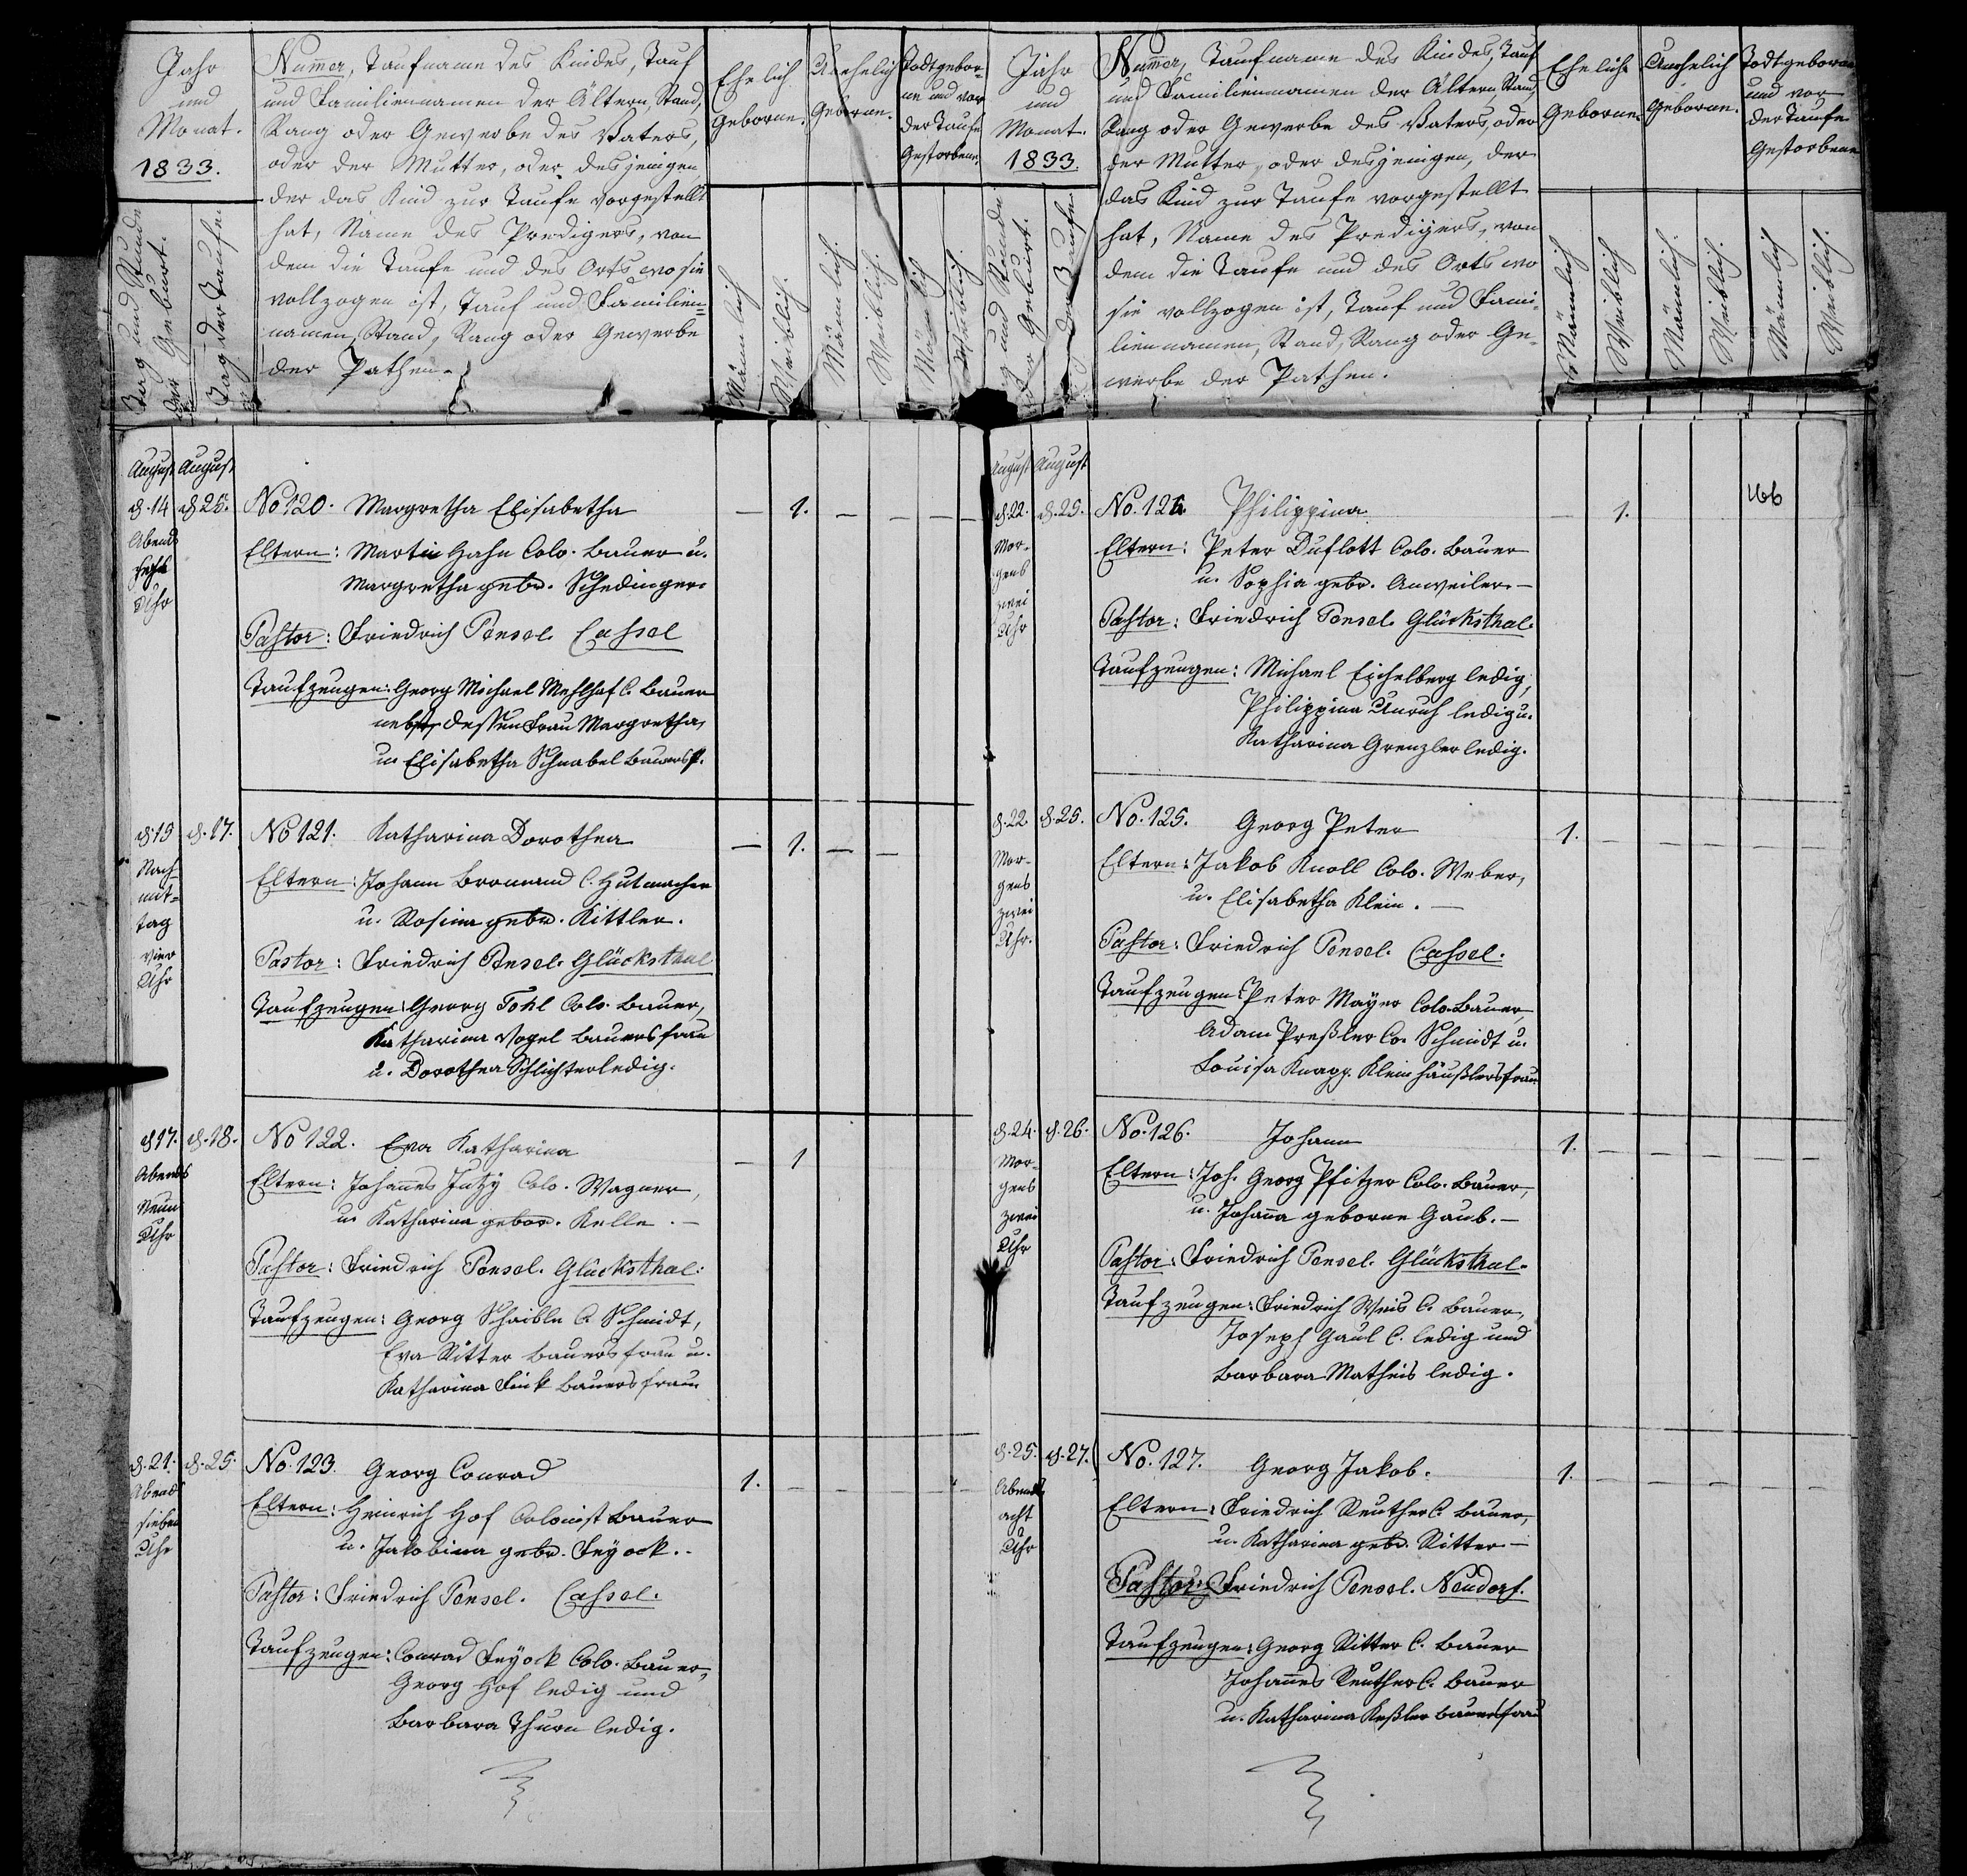 Jahr
und
Monat.
1833.
Tag und Stunde
der Geburt.
Tag der Taufe.
Numer, Taufname des Kindes, Tauf
und Familiennamen der Ältern, Stand,
Rang oder Gewerbe des Vaters,
oder der Mutter, oder desjenigen
der das Kind zur Taufe vorgestellt
hat, Name des Predigers, von
dem die Taufe und des Orts wo sie
vollzogen ist, Tauf und Familien=
namen, Stand, Rang oder Gewerbe
der Pathen.
Ehelich
Geborne.
Unehelich
Geborne.
Todtgebor=
ne und vor
der Taufe
Gestorbene.
Männlich
Weiblich.
Männlich.
Weiblich.
Männlich
Weiblich.
August
August
d. 14
d. 25.
Abends
sechs
Uhr
No 120. Margretha Elisabetha
— 1. — — — —
Eltern: Martin Hahn Colo. Bauer u.
Margretha gebr. Schedinger.
Pastor: Friedrich Pensel. Cassel
Taufzeugen: Georg Michael Mehlhaf C. Bauer
nebst dessen Frau Margretha,
u. Elisabetha Schnabel Bauersf.
d. 15
d. 17.
Nach=
mit=
tag
vier
Uhr
No 121. Katharina Dorothea
— 1. — —
Eltern: Johann Bromand C. Hutmacher
u. Rosina gebr. Kittler.
Pastor: Friedrich Pensel. Glücksthal
Taufzeugen: Georg Fohl Colo. Bauer,
Katharina Vogel Bauersfrau
u. Dorothea Schlichter ledig.
d. 17.
d. 18.
Abends
Neun
Uhr
No 122. Eva Katharina
— 1
Eltern: Johanes Jutzy Colo. Wagner,
u. Katharina gebor. Kelle. —
Pastor: Friedrich Pensel. Glücksthal:
Taufzeugen: Georg Schaible C. Schmidt,
Eva Ritter Bauersfrau u.
Katharina Fink Bauersfrau
d. 21.
d. 25.
Abend
sieben
Uhr
No. 123. Georg Conrad
1. — — — — —
Eltern: Heinrich Hof Colonist Bauer
u. Jakobina gebr. Feyock. -
Pastor: Friedrich Pensel. Cassel.
Taufzeugen: Conrad Feyock Colo. Bauer,
Georg Hof ledig und
Barbara Thurn ledig.
Jahr
und
Monat.
1833.
Tag und Stunde
der Geburt.
der Taufe
Numer, Taufname des Kindes, Tauf
und Familiennamen der Ältern, Stand,
Rang oder Gewerbe des Vaters, oder
der Mutter, oder desjenigen, der
das Kind zur Taufe vorgestellt
hat, Name des Predigers, von
dem die Taufe und des Orts wo
sie vollzogen ist, Tauf und Fami-
liennamen, Stand, Rang oder Ge-
werbe der Pathen.
Ehelich
Geborne.
Unehelich
Geborne.
Todtgeborne
und vor
der Taufe
Gestorbene
Männlich
Weiblich
Männlich.
Weiblich.
Männlich
Weiblich.
166
August
August
d. 22.
d. 25.
Mor-
gens
zwei
Uhr
No. 124. Philippina
— 1.
Eltern: Peter Duflott Colo. Bauer
u. Sophia gebr. Anweiler. —
Pastor: Friedrich Pensel. Glücksthal.
Taufzeugen: Michael Eichelberg ledig,
Philippina Unruh ledig u.
Katharina Grenzler ledig.
d. 22
d. 25.
Mor-
gens
zwei
Uhr.
No. 125. Georg Peter
1. — — — — —
Eltern: Jakob Knoll Colo. Weber,
u. Elisabetha Klein. —
Pastor: Friedrich Pensel. Cassel.
Taufzeugen: Peter Mayer Colo. Bauer,
Adam Preßler Co. Schmidt u.
Louisa Knapp. Kleinhäußlersfrau
d. 24.
d. 26.
Mor-
gens
zwei
Uhr
No. 126. Johann
1. — — — — —
Eltern: Joh. Georg Pfitzer Colo. Bauer,
u. Johana geborne Gaub. —
Pastor: Friedrich Pensel. Glücksthal.
Taufzeugen: Friedrich Weis C. Bauer,
Joseph Gaul C. ledig und
Barbara Matheis ledig.
d. 25.
d. 27.
Abends
acht
Uhr
No. 127. Georg Jakob.
1. — — — — —
Eltern: Friedrich Reuther C. Bauer,
u. Katharina gebr. Ritter —
Pastor: Friedrich Pensel. Neudorf.
Taufzeugen: Georg Ritter C. Bauer
Johanes Reuther C. Bauer
u. Katharina Keßler Bauersfrau